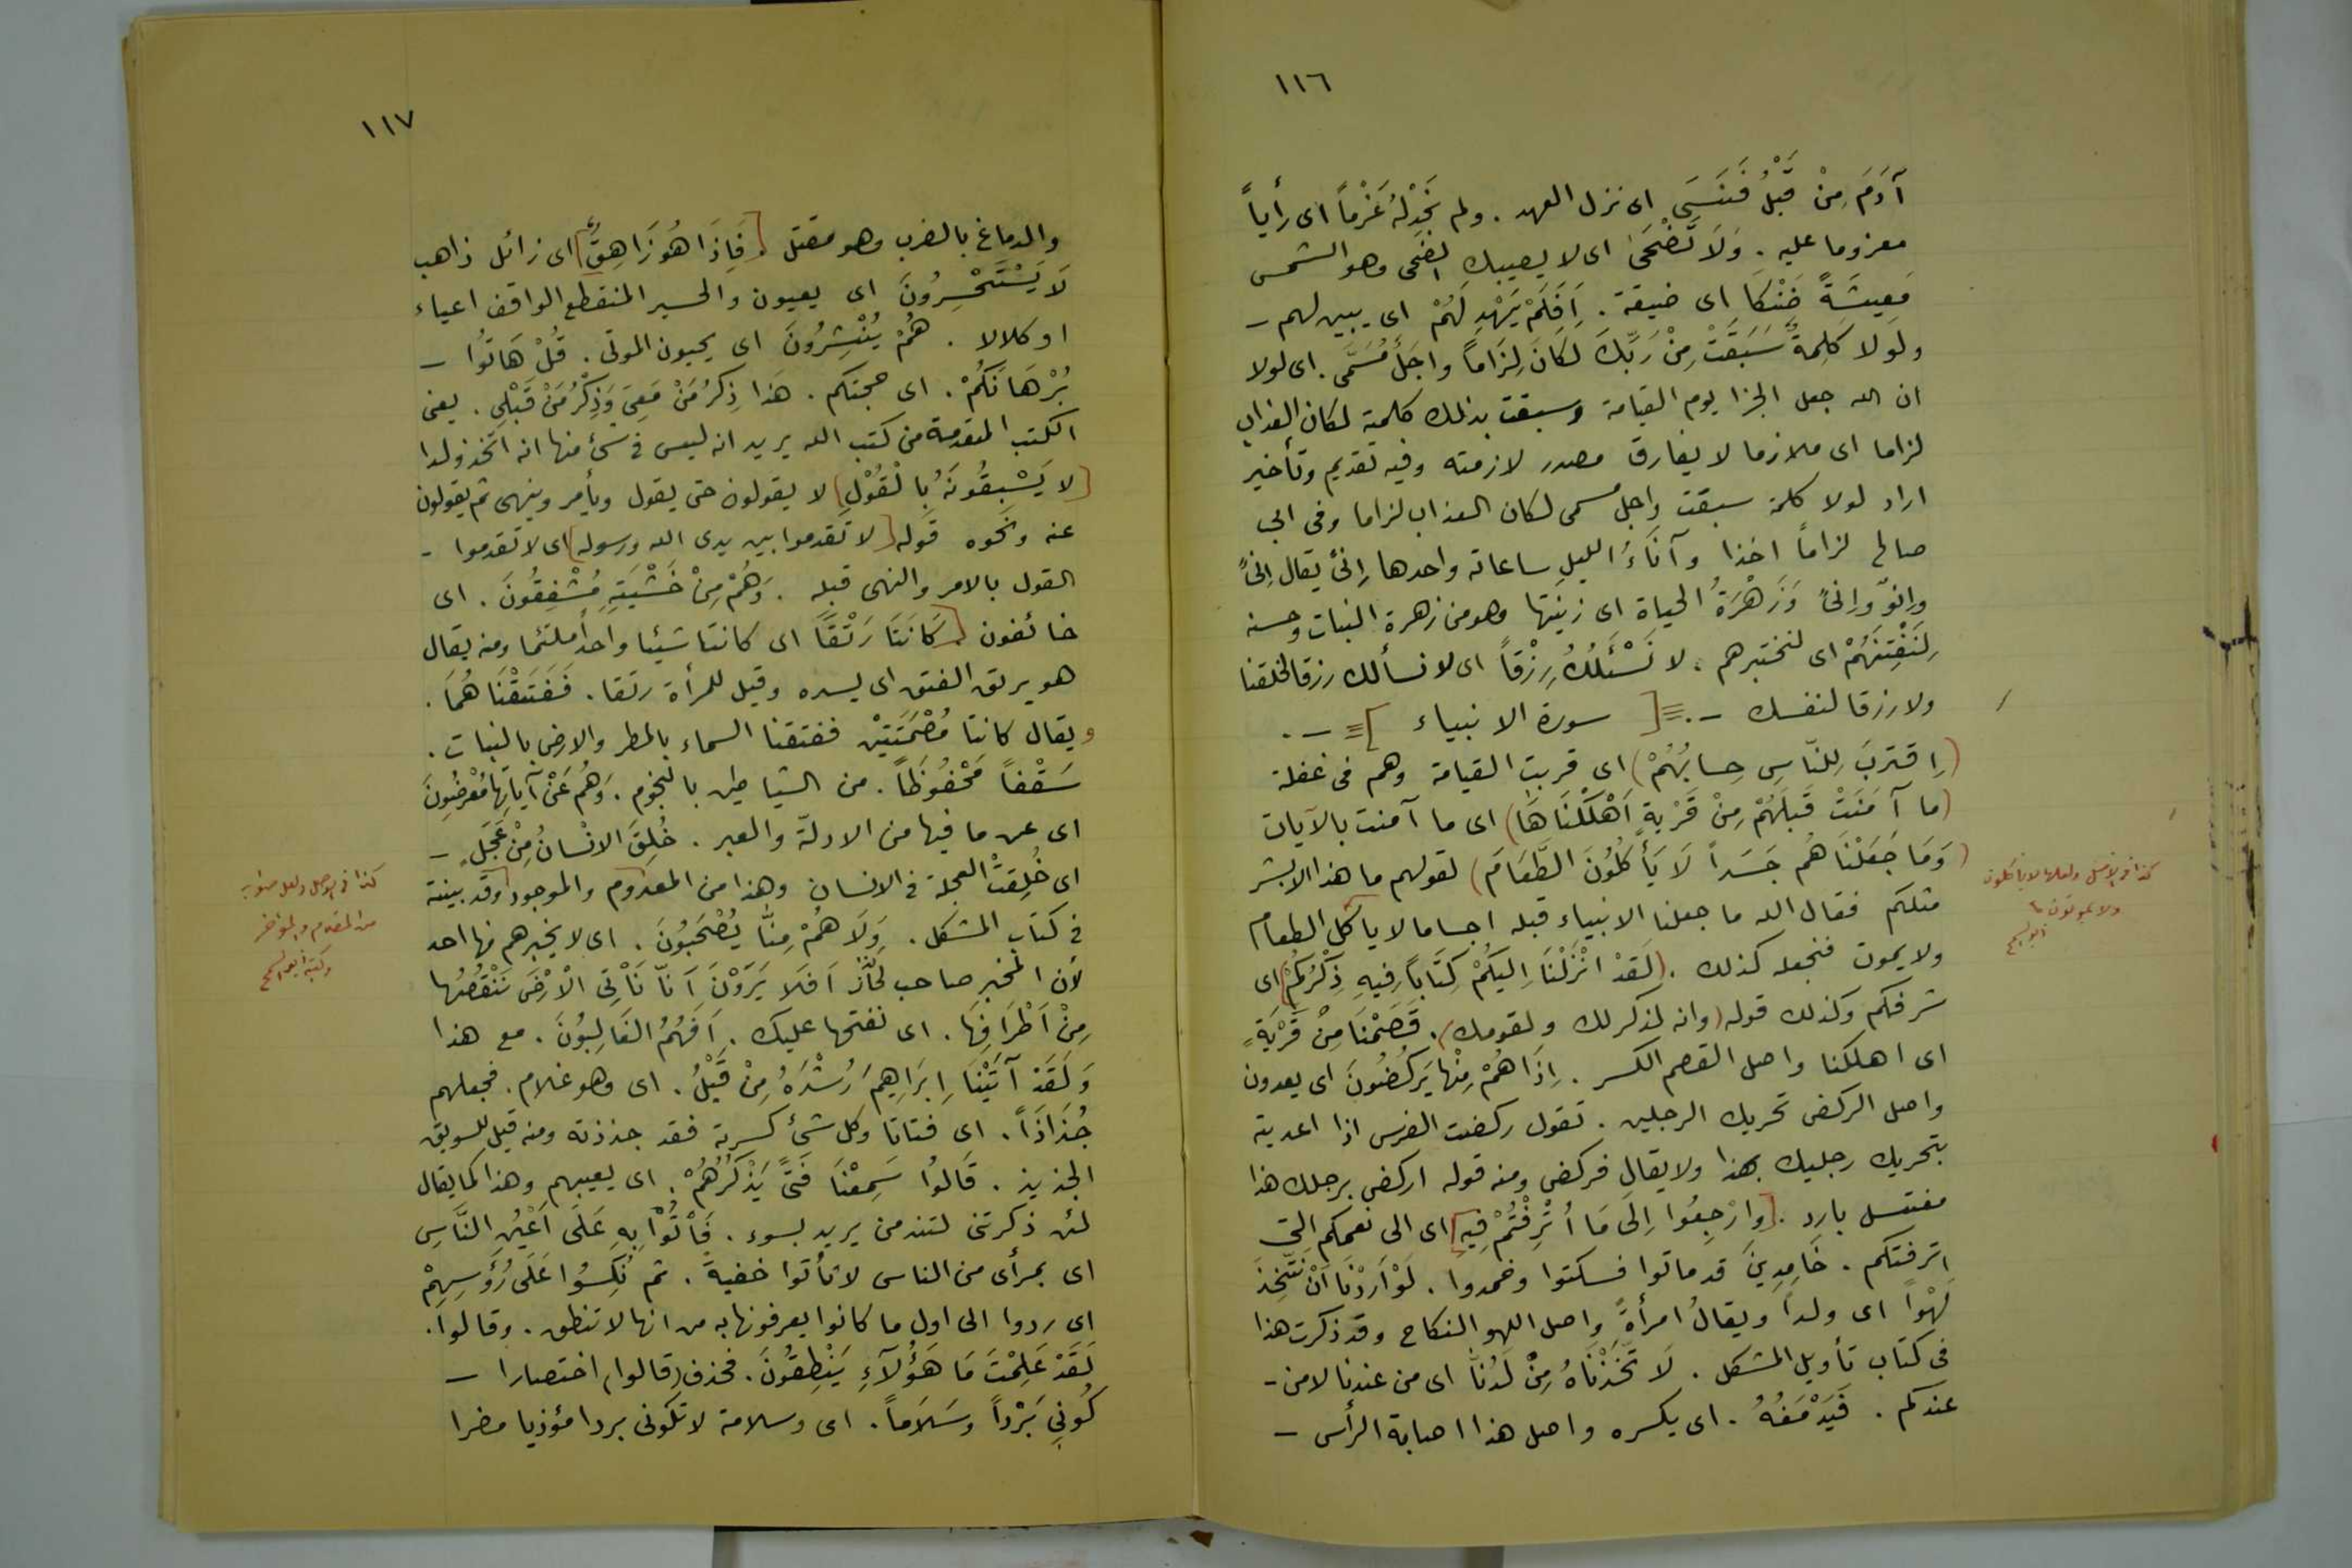 ١١٦
آدَمَ مِنْ قَبْلُ فَنَسَىَ اى نزل العهد . ولم نَجِدْ لَهُ عَزْماً اى رأياً
معزوما عليه . وَلَا تَضْحَىٰ اى لا يصيبك الضحى وهو الشمس
مَعِيشَةً ضَنْكَا اى ضيقة . اَفَلَمْ يَهْدِ لَهُمْ اى يبين لهم –
ولولا كَلِمةٌ سَبَقَتْ مِنْ رَبِّكَ لكَانَ لِزَاماً واجَلٌ مُسَمًّى . اى لولا
ان الله جعل الجزا يوم القيامة وسبقت بذلك كلمية لكان العذاب
لزاما اى ملازما لا يفارق مصدر لازمته وفيه تقديم وتأخير
اراد لولا كلمة سبقت واجل مسمى لكان العذاب لزاما وفى ابى
صالح لزاماً اخذا وآنَاءُ الليل ساعاته واحدها إنىً يقال إنىً
وإنوٌ وإنىً وَزَهْرَةُ الحياة اى زينتها وهو من زهرة النبات وحسنه
لِنَفْتِنَهُمْ اى لنختبرهم . لا نَسْئَلُكُ رِزْقاً اى لا نسألك رزقا لخلقنا
ولا رزقا لنفسك – . [ سورة الانبياء ] – .
(اِقتَرَبَ لِلنَّاسِ حِسابُهُمْ) اى قربت القيامة وهم فى غفلة
(ما آمَنَتْ قَبلَهُمْ مِنْ قَرْيةٍ اَهْلَكْنَاهَا) اى ما آمنت بالآيات
(وَمَا جَعَلْنَاهُم جَسَداً لَا يَأْكُلُونَ الطَّعَامَ) لقولهم ما هذا الا بشر
مثلكم فقال الله ما جعلنا الانبياء قبله اجساما لا يأكل الطعام
ولا يموت فنجعله كذلك . (لَقَدْ انْزَلْنَا اِليَكُمْ كِتَاباً فِيهِ ذِكْرُكُمْ) اى
شرفكم وكذلك قوله (وانه لذكر لك ولقومك) . قَصَمْنَا مِنْ قَرْيَةٍ
اى اهلكنا واصل القصم الكسر . اِذَا هُمْ مِنْها يَركُضُونَ اى يعدون
واصل الركض تحريك الرجلين . تقول ركضت الفرس اذا اعديته
بتحريك رجليك بهذا ولا يقال فركض ومنه قوله اركض برجلك هذا
مغتسل بارد . [وارْجِعُوا اِلَى مَا اُتْرِفْتُمْ فِيهِ] اى الى نعمكم التى
اترفتكم . خَامِدِينَ قد ماتوا فسكتوا وخمدوا . لَوْ اَرَدْنَا اَنْ نَتَّخِذَ
لَهْواً اى ولداً ويقالُ امرأةً واصل اللهو النكاح وقد ذكرت هذا
فى كتاب تأويل المشكل . لَا تَّخَذْنَاهُ مِنْ لَدُنَّا اى من عندنا لا من –
عندكم . فَيَدْمَغُهُ . اى يكسره واصل هذا اصابة الرأس –
كذا فى الاصل ولعلها لا يأكلون
ولا يموتون
١١٧
والدماغ بالضرب وهو مقتل [فَاِذَا هُوَ زَاهِقٌ] اى زائل ذاهب
لَا يَسْتَحْسِرُونَ اى يعيون والحسير المنقطع الواقف اعياء
او كلالا . هُمْ يُنْشِرُونَ اى يحيون الموتى . قُلْ هَاتُوا –
بُرْهَانَكُمْ . اى حجتكم . هَذا ذِكرُ مَنْ مَعِىَ وَذِكْرُ مَنْ قَبْلِى . يعنى
الكتب المتقدمة من كتب الله يريد انه ليس فى شئ منها انه اتخذ ولدا
[لا يَسْبِقُونَهُ بِالْقَوْلِ) لا يقولون حتى يقول ويأمر وينهى ثم يقولون
عنه ونحوه قوله [لا تقدموا بين يدى الله ورسوله] اى لا تقدموا –
القول بالامر والنهى قبله . وَهُمْ مِنْ خَشْيَتِهِ مُشْفِقُونَ . اى
خائفون [كَانَتَا رَتْقاً اى كانتا شيئا واحداً ملتئما ومنه يقال
هو يرتق الفتق اى يسده وقيل للمرأة رتقا . فَفَتَقْنَاهُمَا .
ويقال كانتا مُصْمَتَتَيْن ففتقنا السماء بالمطر والارض بالنبات .
سَقْفاً مَحْفُوظَاً . من الشياطين بالنجوم . وَهُمْ عَنْ آيَاتِهَا مُعْرِضُونَ
اى عن ما فيها من الادلّة والعبر . خُلِقَ الانْسَانُ مِنْ عَجَلٍ –
اى خُلِقتْ العجلة فى الانسان وهذا من المعدوم والموجود وقد بينته
فى كتاب المشكل . وَلَاهُمْ مِنَّا يُصْحَبُونَ . اى لا يخبرهم منها احد
لأن المخبر صاحب لجَارٍ اَفَلَا يَرَوْنَ اَنّا نَأْتِى الْارْضَ نَنْقُصُها
مِنْ اَطْرَافِهَا . اى نفتحها عليك . اَفَهُمُ الغَالِبُونَ . مع هذا
وَلَقَدْ آتَيْنَا اِبَرَاهِيمَ رُشْدَهُ مِنْ قَبْلُ . اى وهو غلام . فجعلهم
جُذَاذَاً . اى فتاتا وكل شئ كسرته فقد جذذته ومنه قيل للسويق
الجذيذ . قَالُوا سَمِعْنَا فَتًى يَذْكُرُهُمْ . اى يعيبهم وهذا كما يقال
لئن ذكرتنى لتندمن يريد بسوء . فَأْتُوْا بِهِ عَلَى اَعْيُنِ النَّاسِ
اى بمرأى من الناس لا تأتوا خفية . ثم نُكِسُوا عَلَى رُؤُسِهِمْ
اى ردوا الى اول ما كانوا يعرفونها به من انها لا تنطق . وقالوا .
لَقَدْ عَلِمْتَ مَا هَؤُلَآءِ يَنْطِقُونَ . فحذف (قالوا) اختصارا –
كُونِى بَرْداً وسَلَاماً . اى وسلامة لا تكونى بردا مؤذيا مضرا
كذا فى الاصل ولعل صوابه
من المقدم والمؤخر